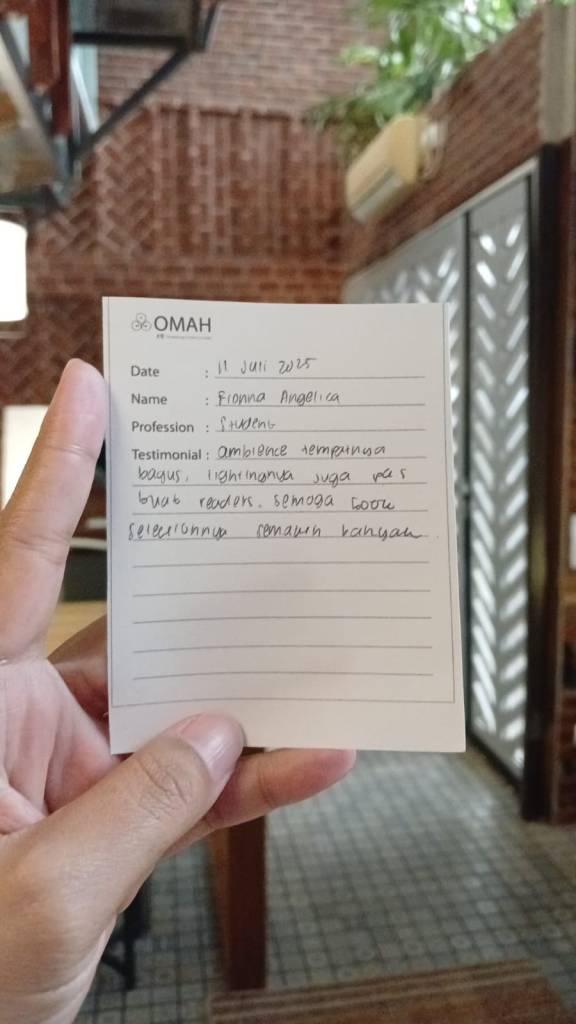 OMAH
Date : 11 Juli 2025
Name : Fionna Angelica
Profession : Student
Testimonial : ambience tempatnya
bagus, lightingnya juga pas
buat readers. semoga book
selectionnya semakin banyak.